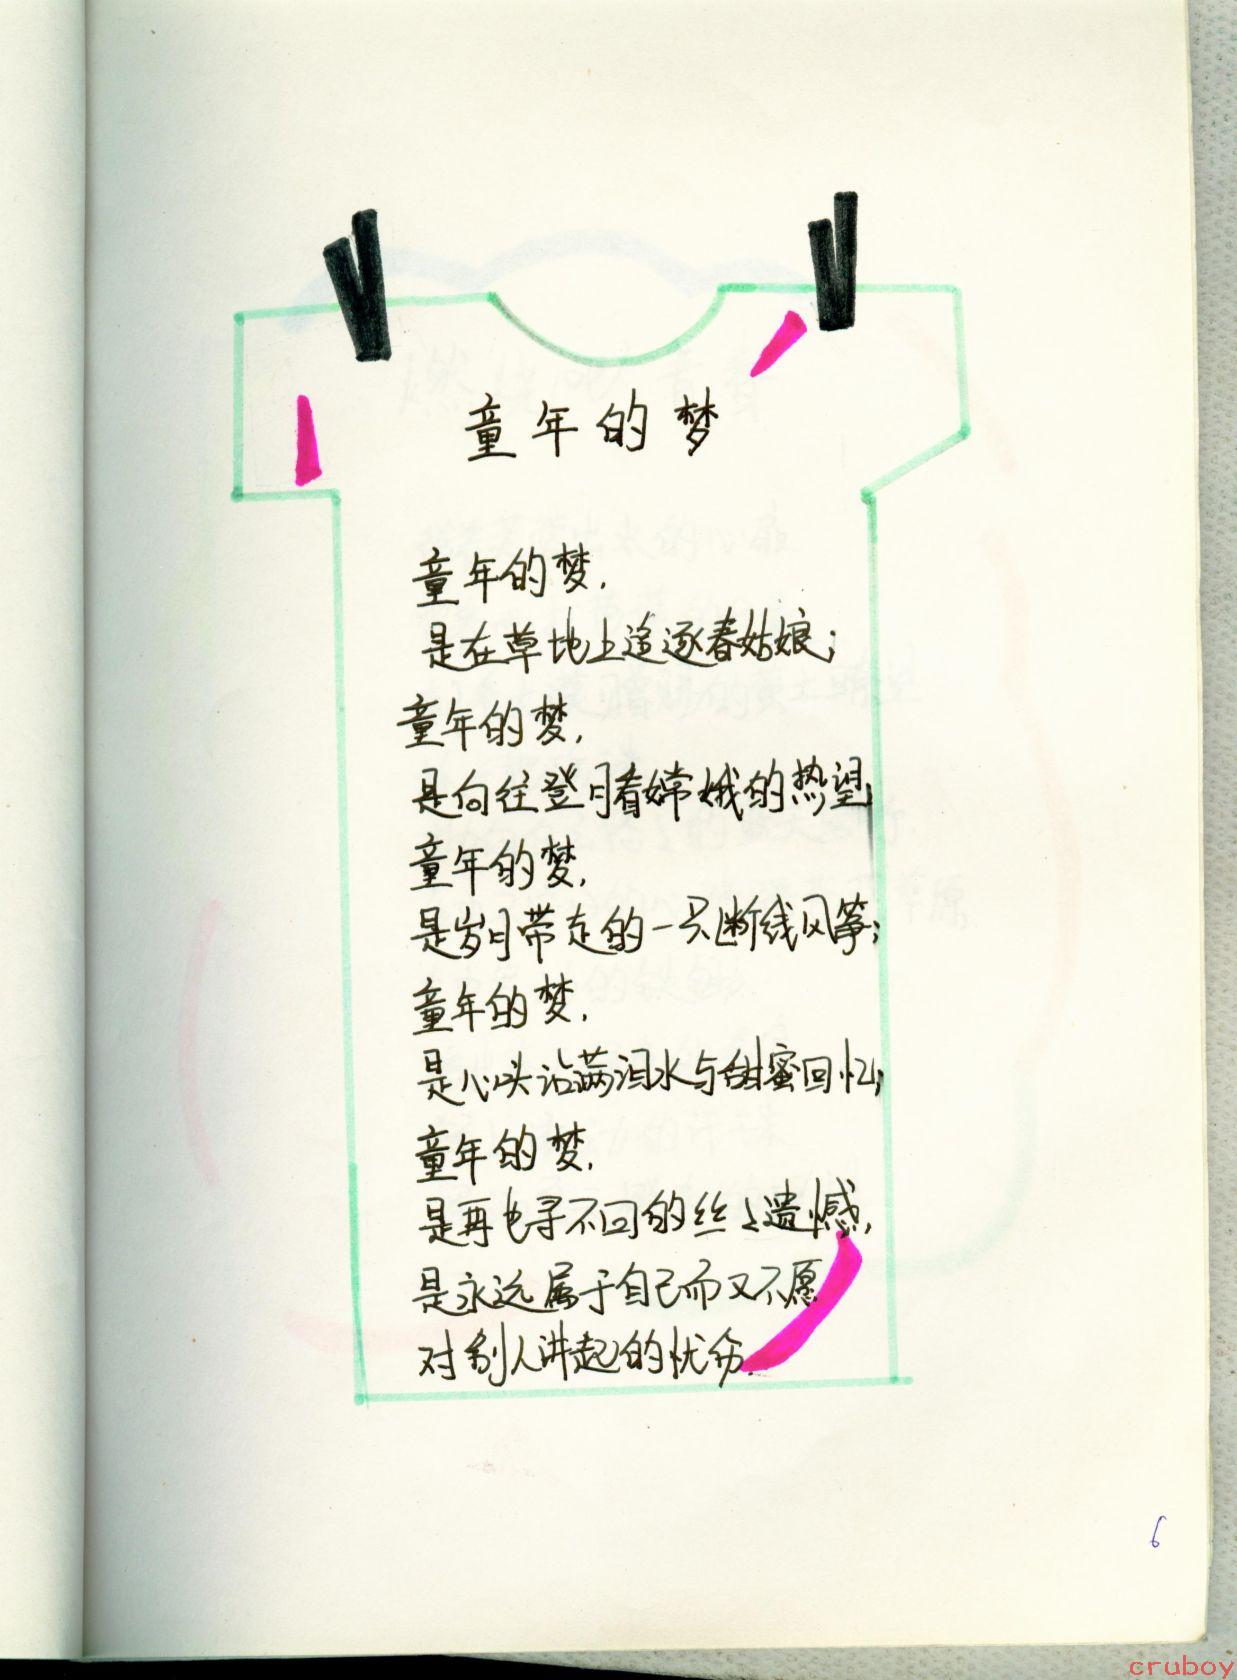 童年的梦
童年的梦,
是在草地上追逐春姑娘;
童年的梦,
是向往登月看嫦娥的热望;
童年的梦,
是岁月带走的一只断线风筝;
童年的梦,
是心头沾满泪水与甜蜜回忆;
童年的梦,
是再也寻不回的丝丝遗憾,
是永远属于自己而又不愿
对别人讲起的忧伤.
6
cruboy